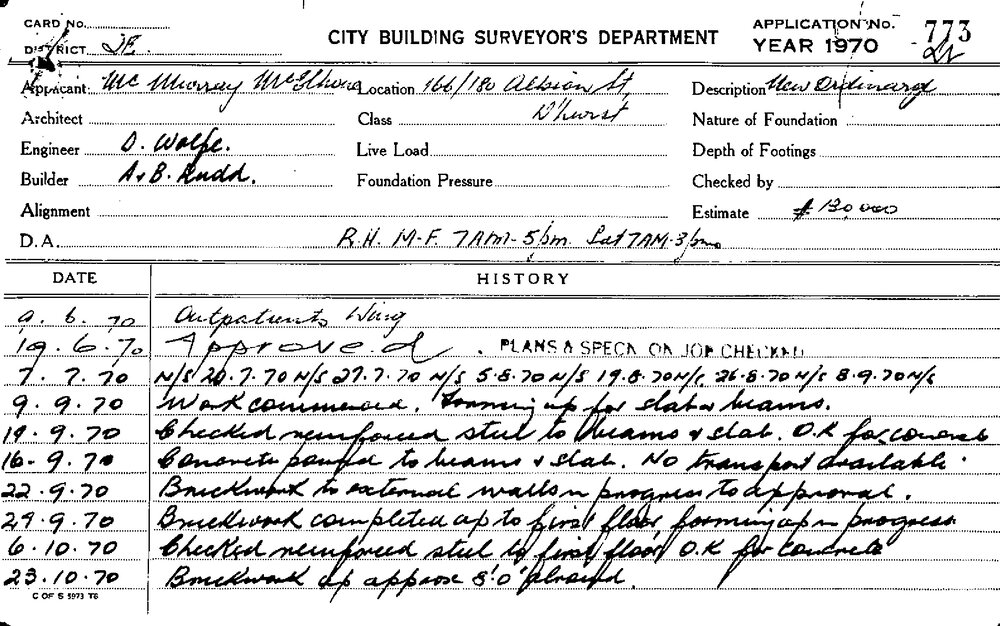 CARD No.
DISTRICT 2E.
CITY BUILDING SURVEYOR'S DEPARTMENT
APPLICATION No. 773
YEAR 1970
Applicant Mc Murray McElhone Location 166/180 Albion St Description New Ordinard
Architect Class D'hurst Nature of Foundation
Engineer D. Wolfe. Live Load Depth of Footings
Builder A & B. Rudd. Foundation Pressure Checked by
Alignment Estimate $130,000
D.A. R.H. M-F. 7AM-5pm. Sat 7AM-3pm
DATE HISTORY
9. 6. 70 Outpatients Wing
19. 6. 70 Approved . PLANS & SPECN ON JOB CHECKED
7. 7. 70 N/S 20.7.70 N/S 27.7.70 N/S 5.8.70 N/S 19.8.70 N/S, 26.8.70 N/S 8.9.70 N/S
9. 9. 70 Work commenced. Forming up for slab & beams.
9. 70 Checked reinforced steel to beams & slab. O.K for concrete
16. 9. 70 Concrete poured to beams & slab. No transport available.
22. 9. 70 Brickwork to external walls in progress to approval.
29. 9. 70 Brickwork completed up to first floor forming up in progress
6. 10. 70 Checked reinforced steel to first floor O.K for concrete
23. 10. 70 Brickwork up approx 8'.0"
C OF S 5973 T6